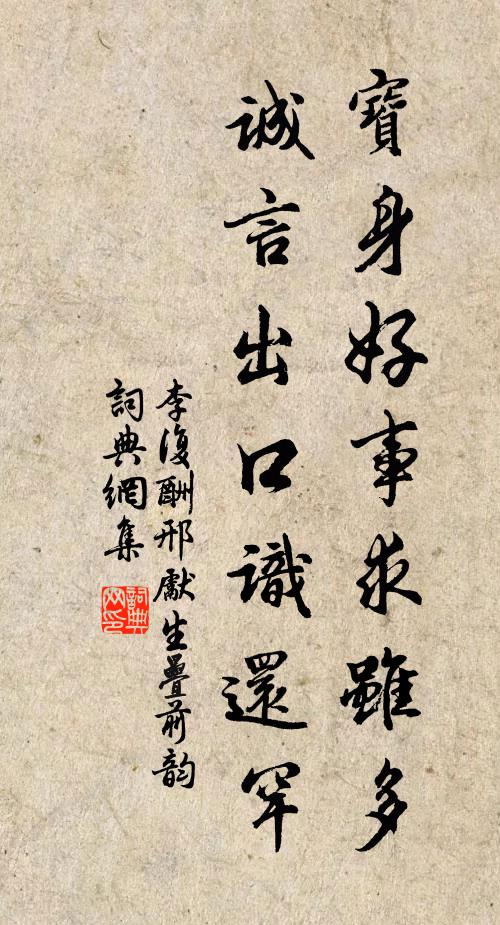 寶身好事求雖多
誠言出口識還罕
李復酬邢獻生疊前韵
詞典網集
詞典网印